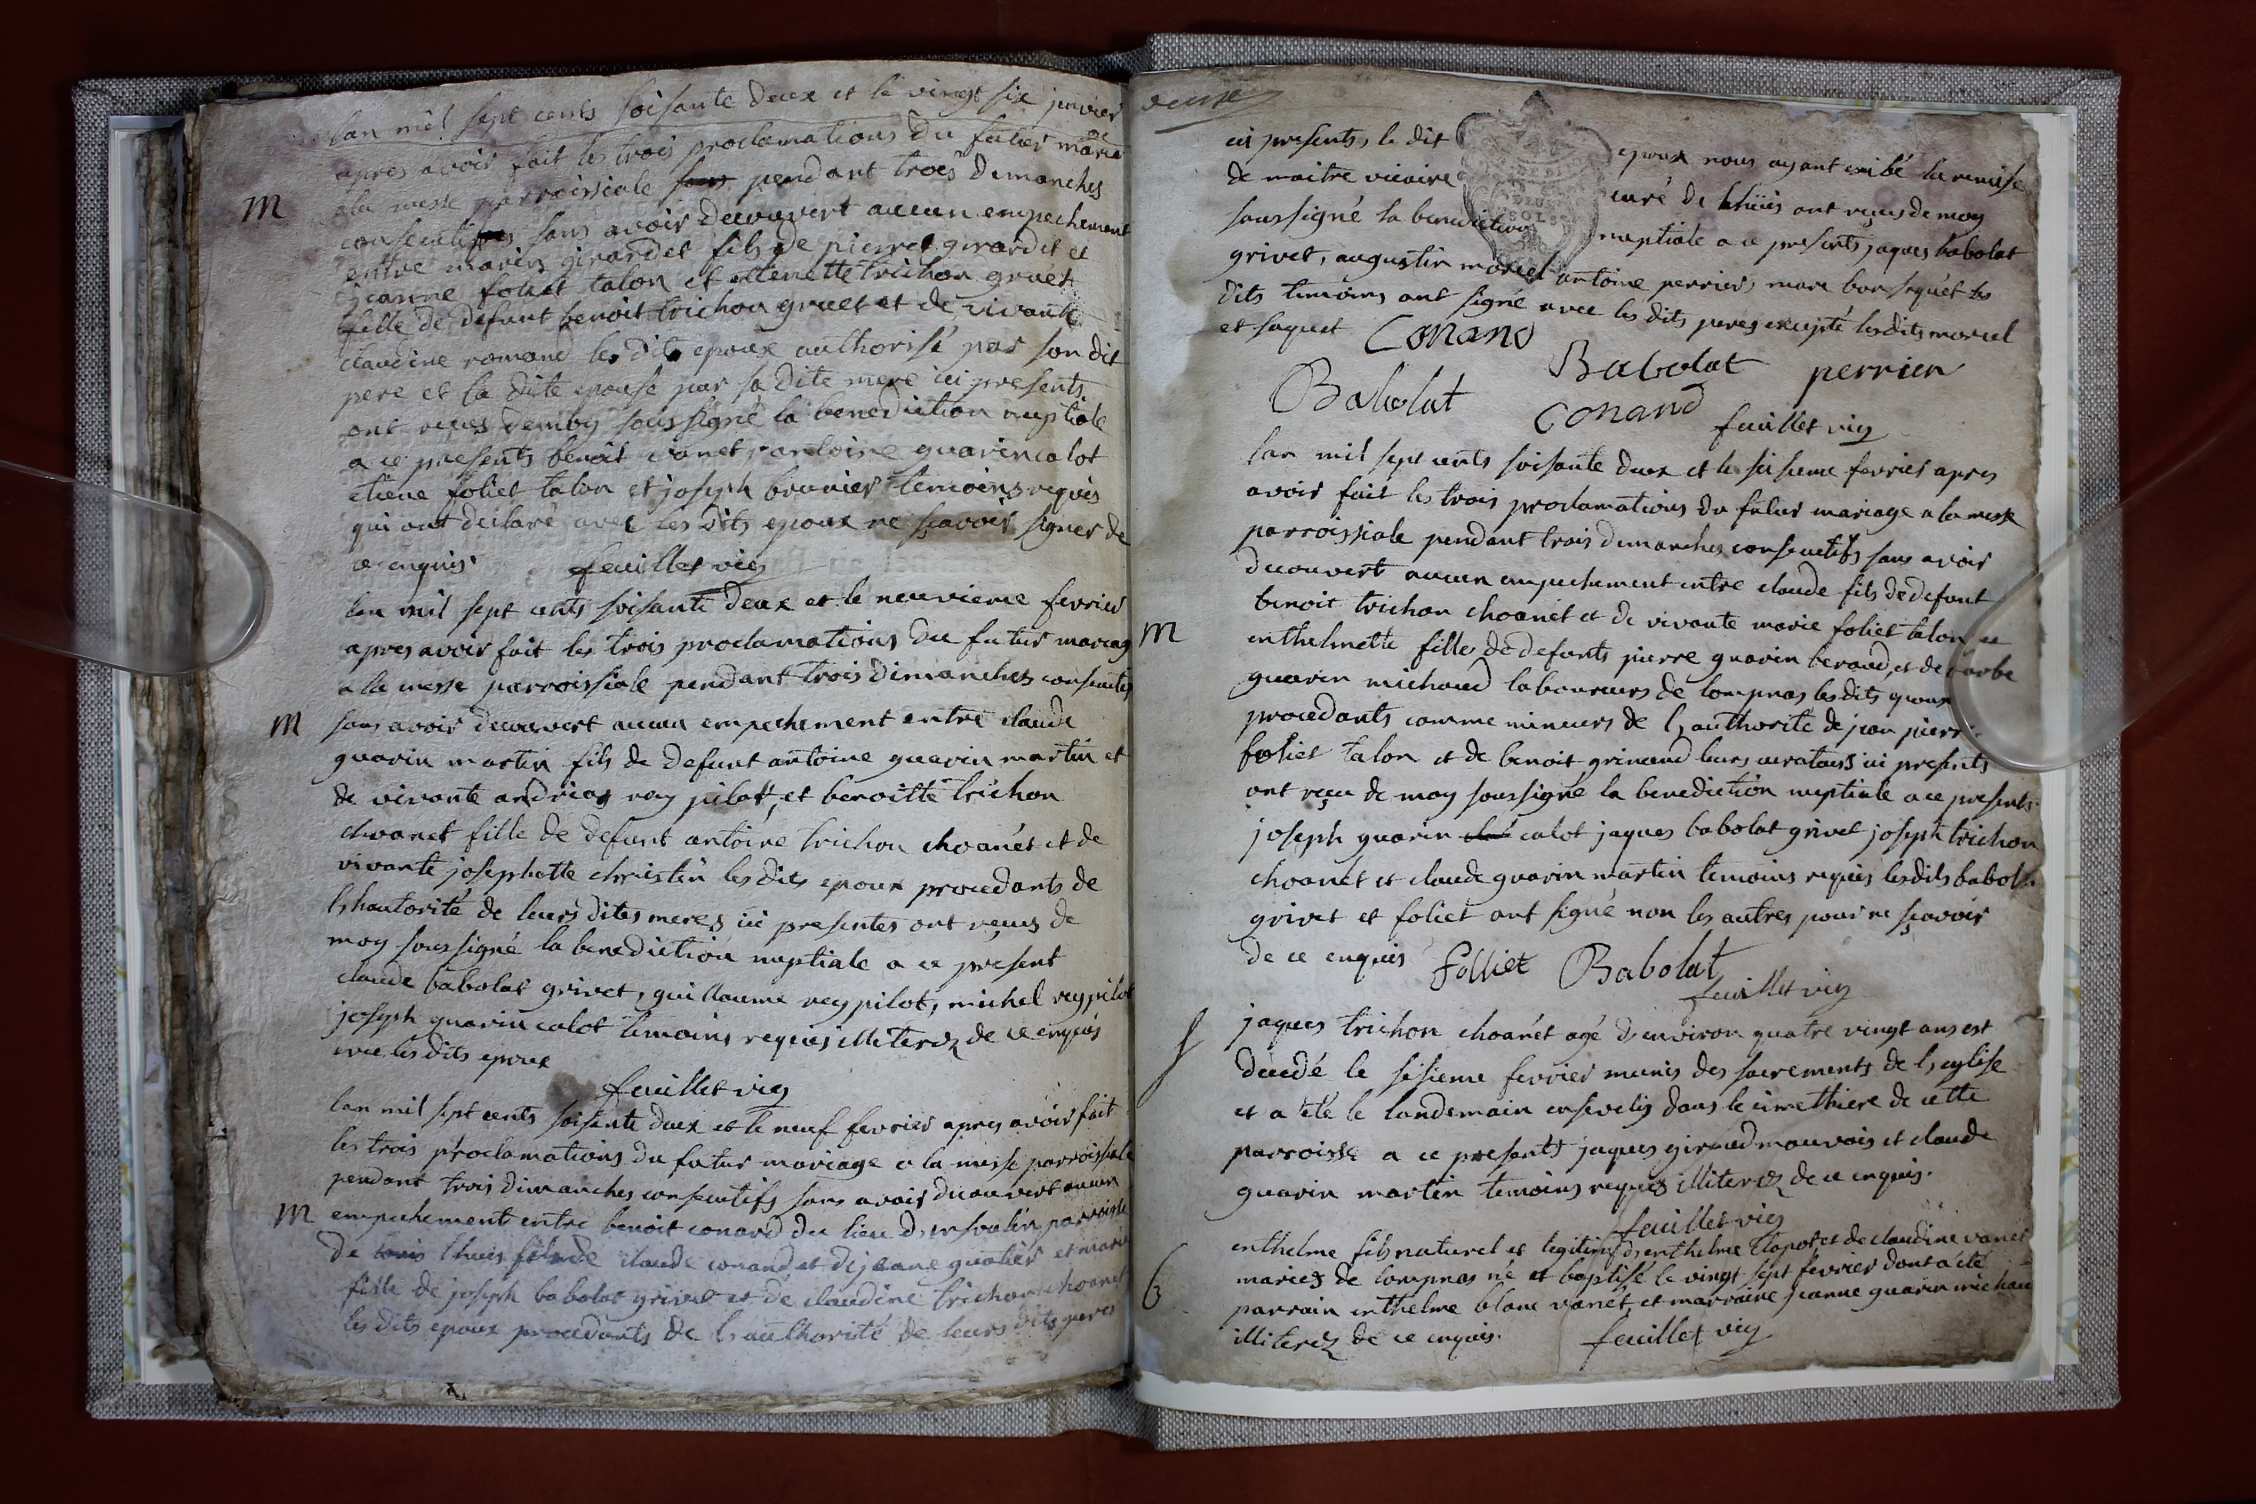 lan mil sept cents soisante deux et le vingt six janvier
apres avoir fait les trois proclamations du futur mariage
M
a la messe parroissiale pendant trois dimanches
consecutifs sans avoir decouvert aucun empechement
entre marin girardet fils de pierre girardet et
jeanne foliet talon et ettenette trichon gruet
fille de defunt benoit trichon gruet et de vivante
claudine romand les dits epoux authorisé par son dit
pere et la dite epouse par sa dite mere ici presents
ont reçus de moy soussigné la benediction nuptiale
a ce presents benoit vanet antoine guarin calot
etiene foliet talon et joseph brunier temoins requis
qui ont declaré avec les dits epoux ne sçavoir signer de
ce enquis feuillet vic
lan mil sept cents soisante deux et le neuvieme fevrier
apres avoir fait les trois proclamations du futur mariag
a la messe parroissiale pendant trois dimanches consecutifs
M
sans avoir decouvert aucun empechement entre claude
guarin martin fils de defunt antoine guarin martin et
de vivante andriaz rey pilot, et benoitte trichon
choanet fille de defunt antoine trichon choanét et de
vivante josephette christin les dits epoux procedants de
l,hautorité de leurs dites meres ici presentes ont reçus de
moy soussigné la benediction nuptiale a ce present
claude babolat grivet, guillaume rey pilot, michel rey pilot
joseph guarin calot temoins requis illiterez de ce enquis
avec les dits epoux
feuillet vic
lan mil sept cents soisante deux et le neuf fevrier apres avoir fait
les trois proclamations du futur mariage a la messe parroissiale
pendant trois dimanches consecutifs sans avoir decouvert aucun
M
empechement entre benoit conand du lieu parroisse
de lhuis fils de claude conand et de jeane et marie
fille de joseph babolat grivet et de claudine trichon choanet
les dits epoux procedants de l,authorité de leurs dits peres
ici presents, le dit epoux nous ayant exibé la remise
de maitre vicaire curé de lhuis ont reçus de moy
soussigné la benediction nuptiale a ce presents jaques babolat
grivet, augustin morel antoine perrier, marc les
dits temoins ont signé avec les dits peres excepté les dits morel
et saquet Conand
Babolat perrier
Babolat
Conand feuillet vic
lan mil sept cents soisante deux et le seisieme fevrier apres
avoir fait les trois proclamations du futur mariage a la messe
parroissiale pendant trois dimanches consecutifs sans avoir
decouvert aucun empechement entre claude fils de defunt
benoit trichon choanet et de vivante marie foliet talon et
M
enthelmette fille de defunts pierre guarin beraud, et de barbe
guarin michaud laboureurs de lompnas les dits epoux
procedants comme mineurs de l,authorité de jean pierre
foliet talon et de benoit grinand leurs curateurs ici presents
ont reçu de moy soussigné la benediction nuptiale a ce presents
joseph guarin calot jaques babolat grivet joseph trichon
choanét et claude guarin martin temoins requis les dits babolat
grivet et foliet ont signé non les autres pour ne sçavoir
de ce enquis folliet Babolat
feuillet vic
jaques trichon choanét agé d,environ quatre vingt ans est
decedé le sisieme fevrier munis des sacrements de l,eglise
et a été le landemain ensevelis dans le cimethiere de cette
parroisse a ce presents jaques giraud mauvais et claude
guarin martin temoins requis illiterez de ce enquis.
feuillet vic
enthelme fils naturel et legitime d,enthelme clapot et de claudine vanet
mariez de lompnas né et baptisé le vingt sept fevrier dont a été
parrain enthelme blanc vanét, et marraine jeanne guarin michau
illiterez de ce enquis. feuillet vic